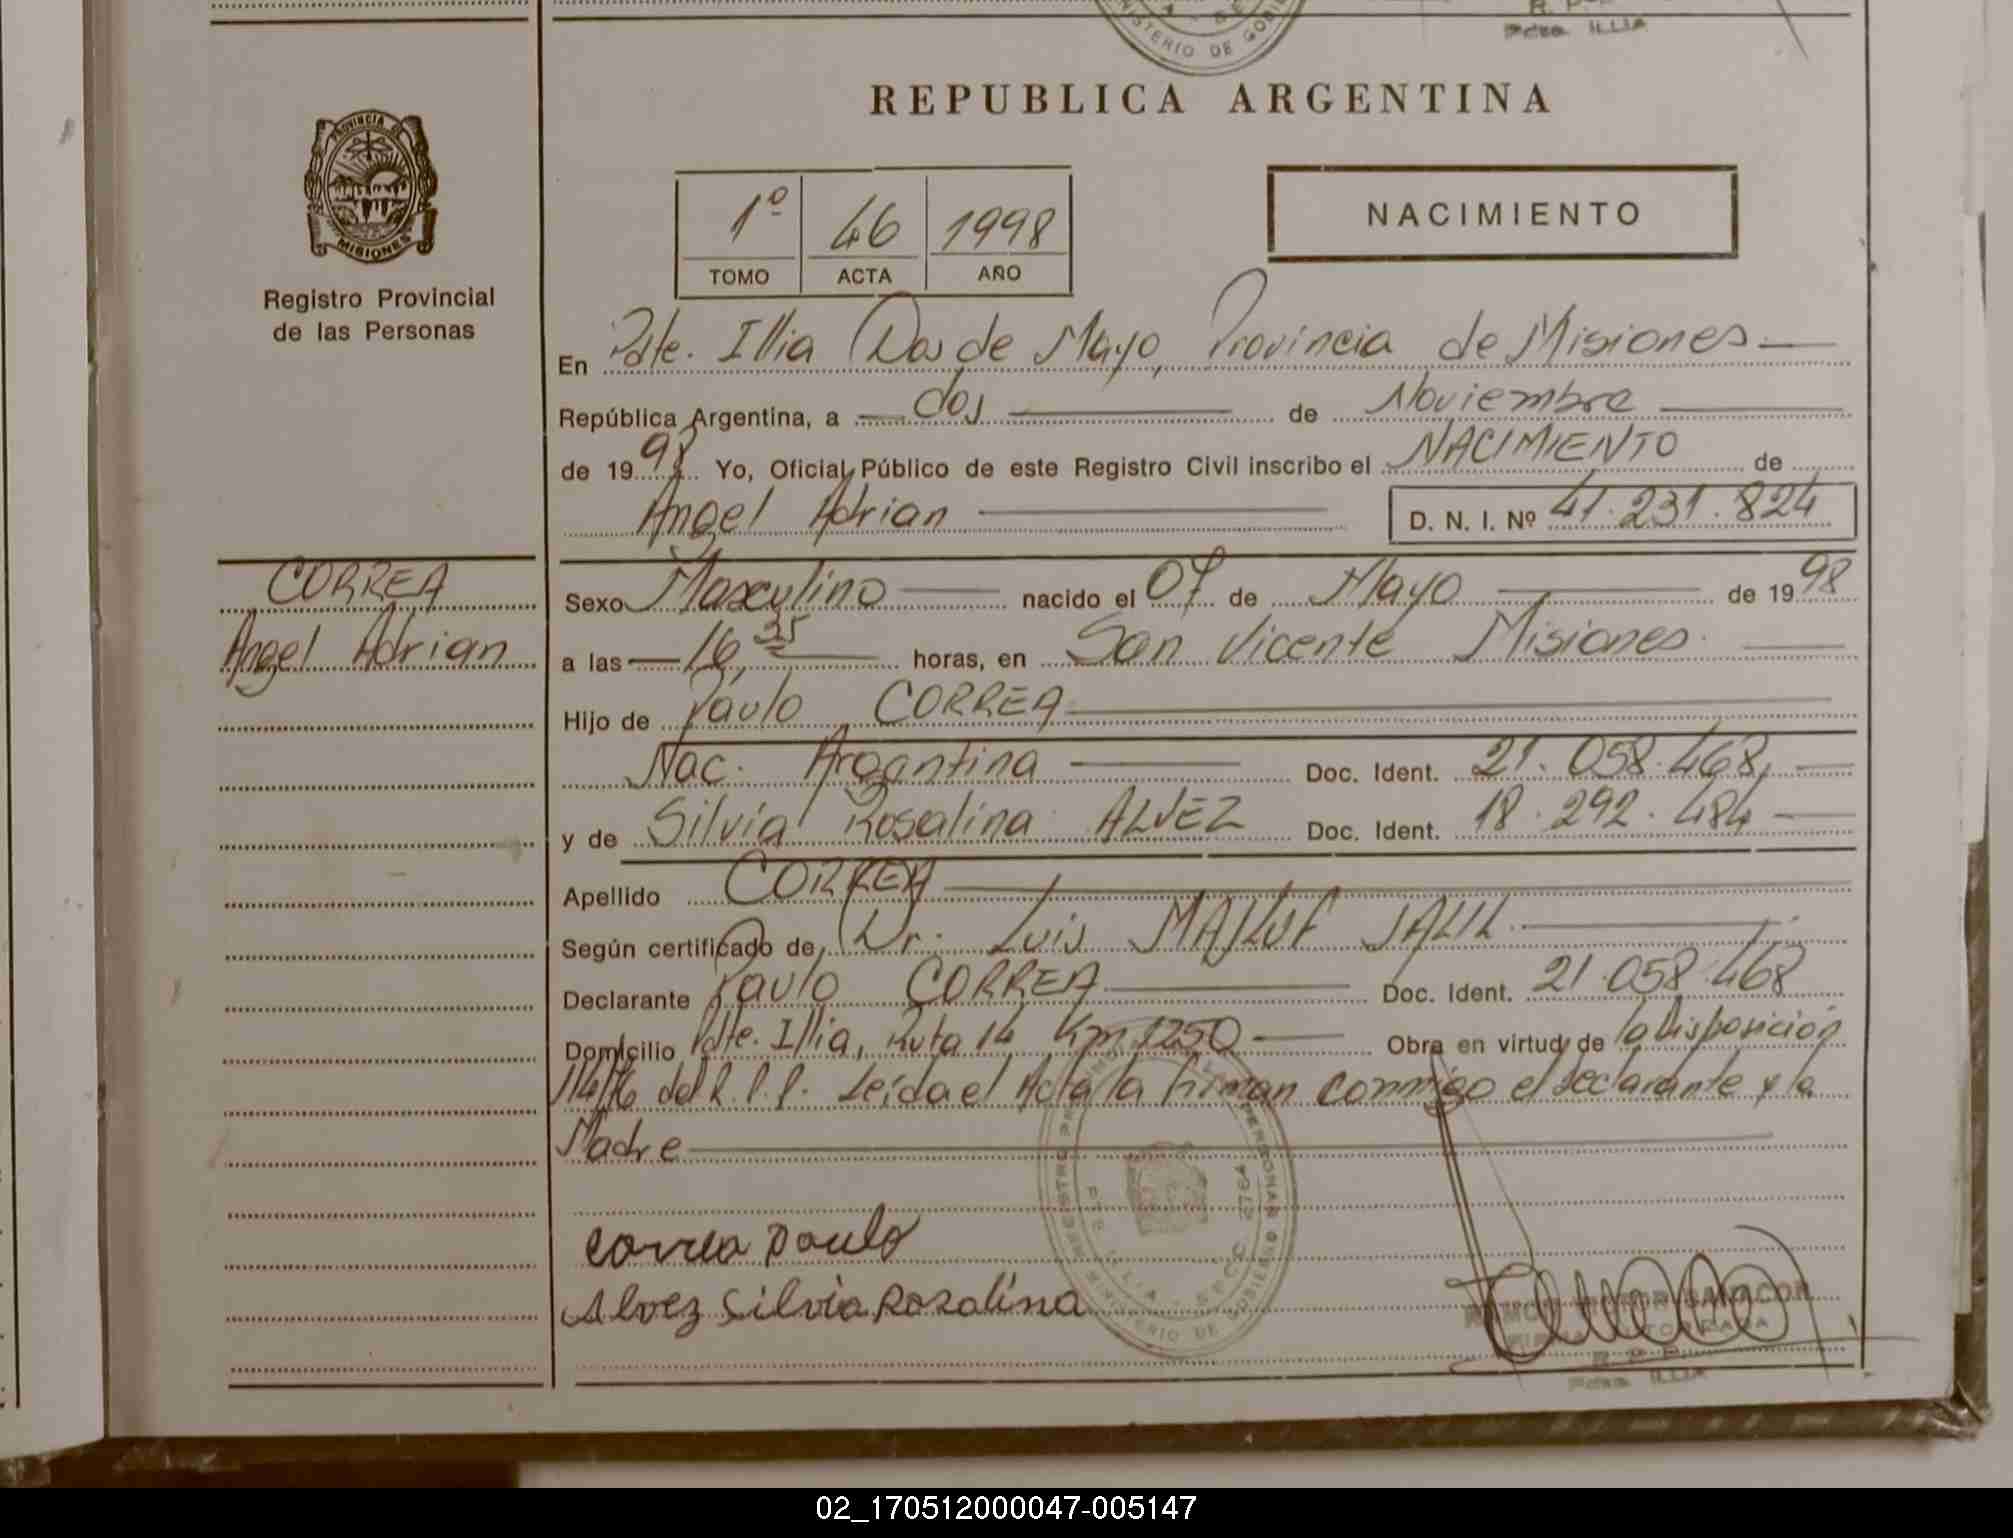 MINISTERIO DE GOBIE
Pdte. ILLIA
REPUBLICA ARGENTINA
PROVINCIA DE
MISIONES
Registro Provincial
de las Personas
1º 46 1998
TOMO ACTA AÑO
NACIMIENTO
En Pdte. Illia Dos de Mayo, Provincia de Misiones
República Argentina, a dos de Noviembre
de 1998. Yo, Oficial Público de este Registro Civil inscribo el NACIMIENTO de
Angel Adrian D. N. I. Nº 41.231.824
CORREA
Angel Adrian
Sexo Masculino nacido el 07 de Mayo de 1998
a las 16,35 horas, en San Vicente Misiones.
Hijo de Paulo CORREA
Nac. Argentina Doc. Ident. 21.058.468,
y de Silvia Rosalina ALVEZ Doc. Ident. 18.292.484
Apellido CORREA
Según certificado de Dr. Luis MAJLUF JALIL
Declarante Paulo CORREA Doc. Ident. 21.058.468
Domicilio Pdte. Illia, Ruta 14 Km 1250 Obra en virtud de la Disposición
114/76 del R.P.P. Leída el Acta la firman conmigo el declarante y la
Madre
Correa Paulo
Alvez Silvia Rosalina
MINISTERIO DE GOBIERNO
Pdte. ILLIA
02_170512000047-005147